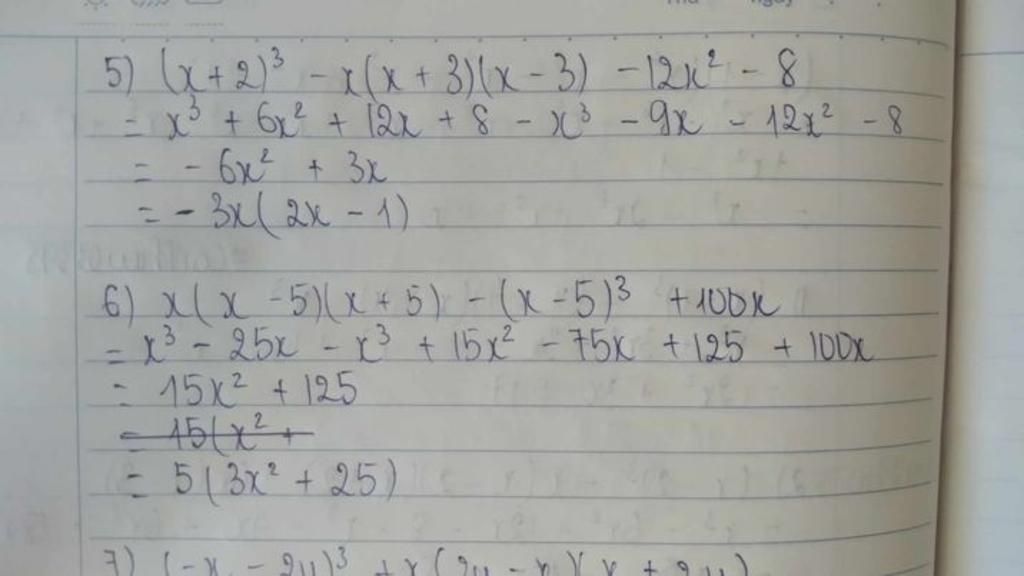 5) (x + 2)³ - x(x + 3)(x - 3) - 12x² - 8
= x³ + 6x² + 12x + 8 - x³ - 9x - 12x² - 8
= - 6x² + 3x
= - 3x(2x - 1)
6) x(x - 5)(x + 5) - (x - 5)³ + 100x
= x³ - 25x - x³ + 15x² - 75x + 125 + 100x
= 15x² + 125
= 15(x² +
= 5(3x² + 25)
7) (-x - 2y)³ + x(2y - x)(x + 2y)